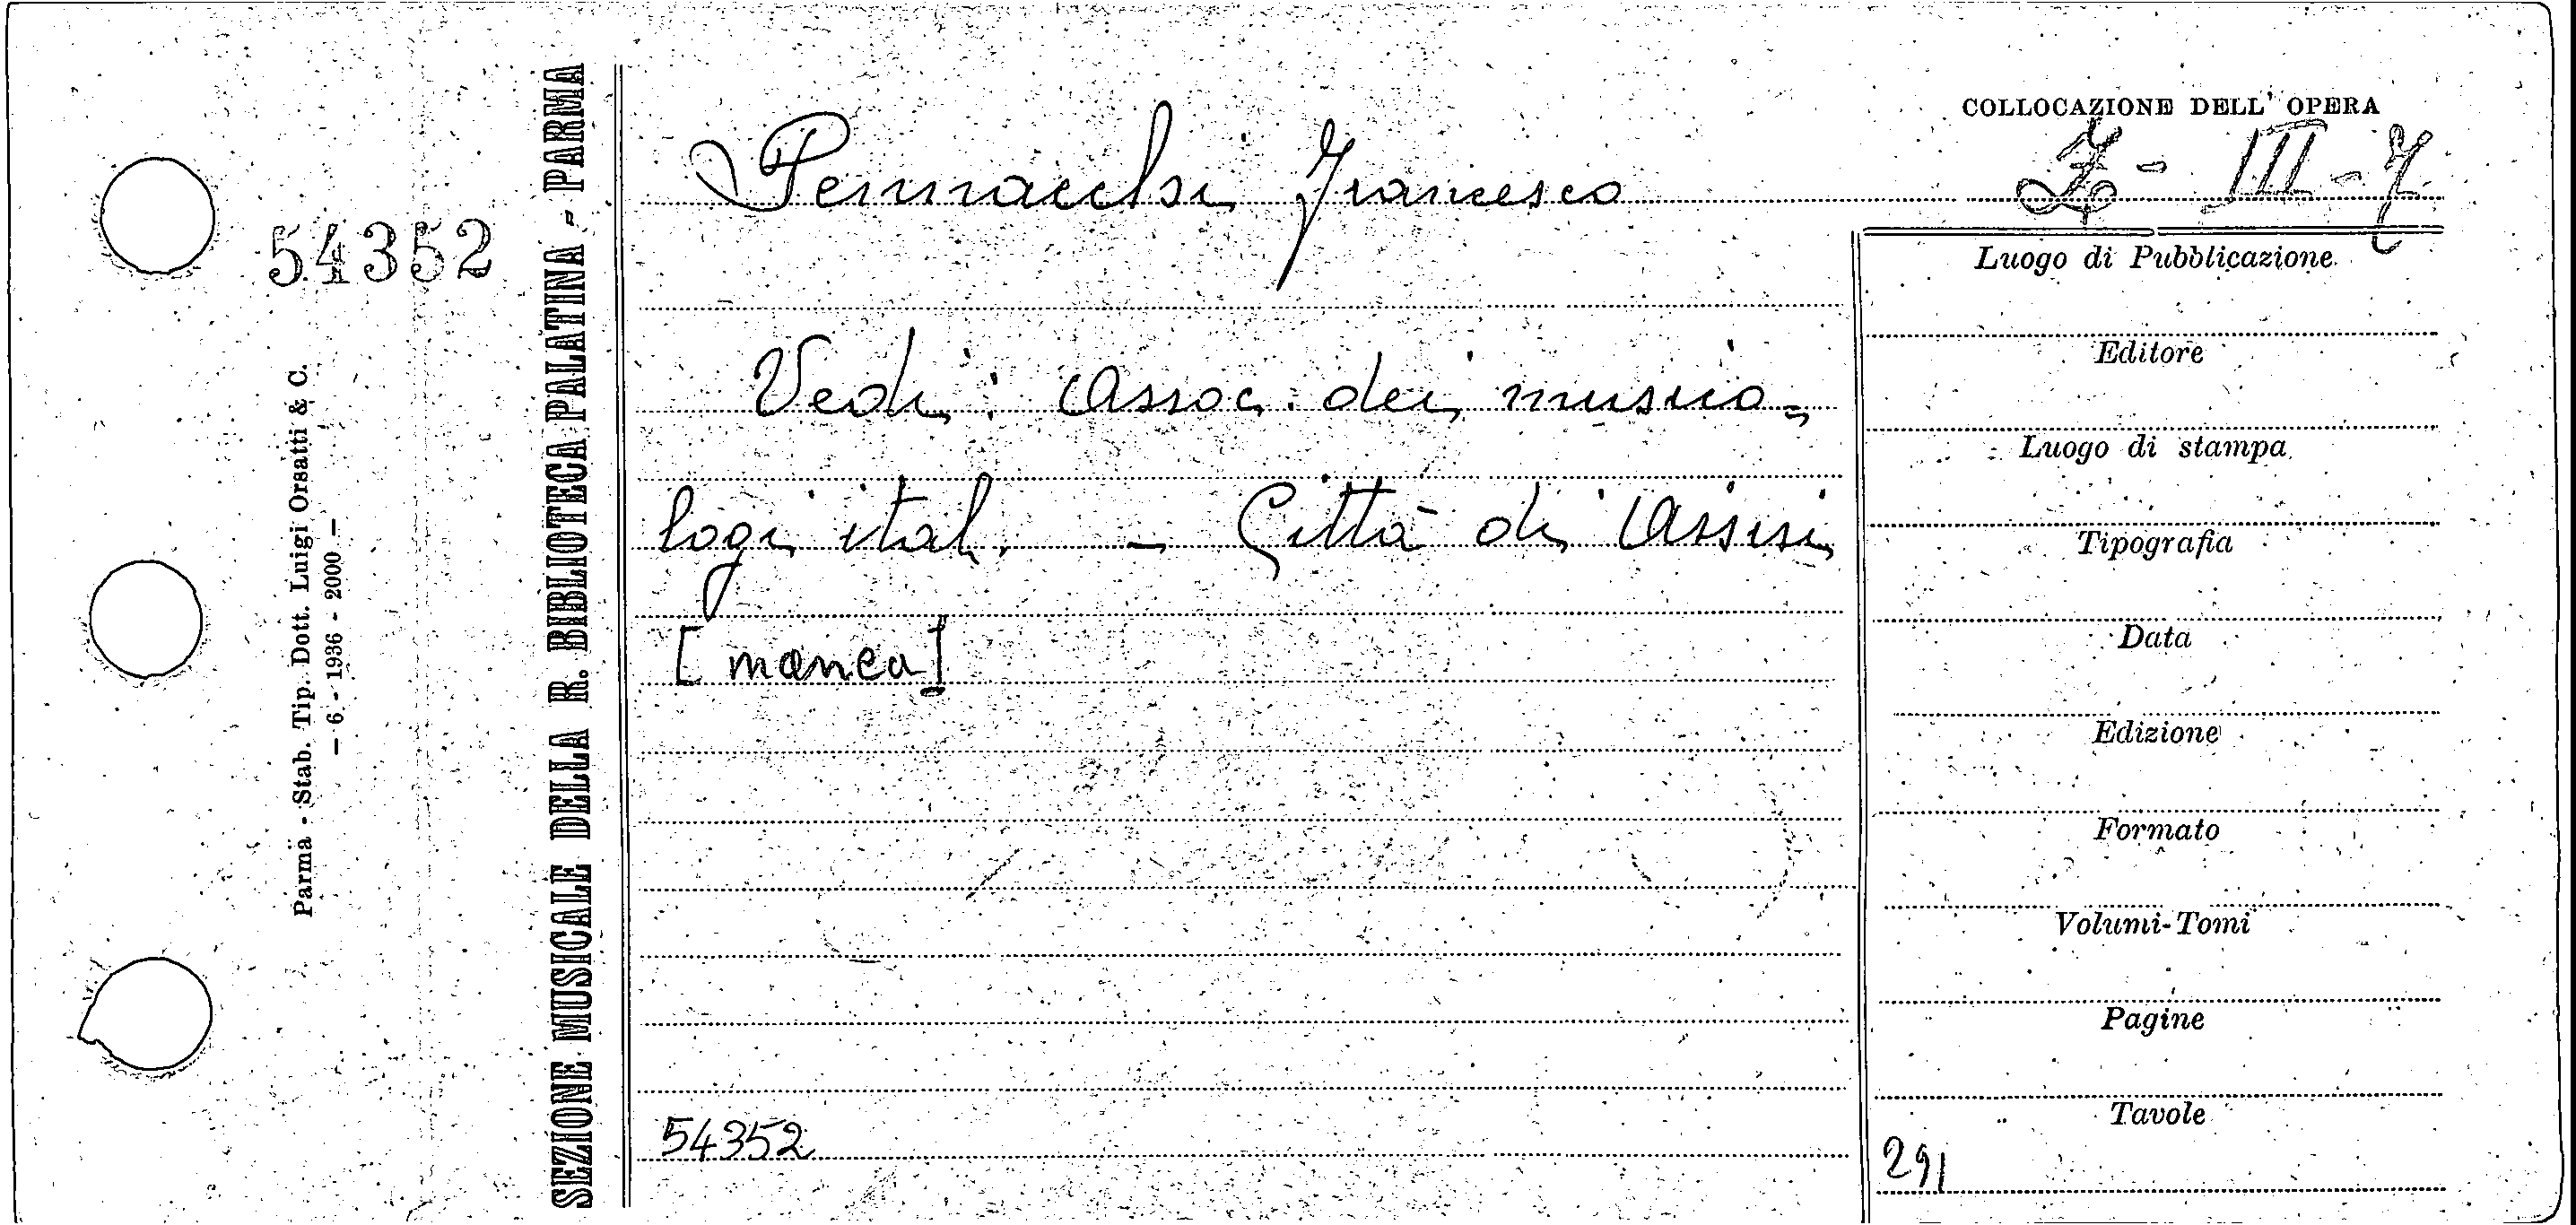 54352
Parma - Stab. Tip. Dott. Luigi Orsatti & C.
— 6 - 1936 - 2000 —
SEZIONE MUSICALE DELLA R. BIBLIOTECA PALATINA - PARMA
Pennacchi Francesco
Vedi: Assoc. dei musico=
logi ital. - Città di Assisi
[manca]
54352
COLLOCAZIONE DELL' OPERA
Z - III - 7
Luogo di Pubblicazione
Editore
Luogo di stampa
Tipografia
Data
Edizione
Formato
Volumi-Tomi
Pagine
Tavole
291